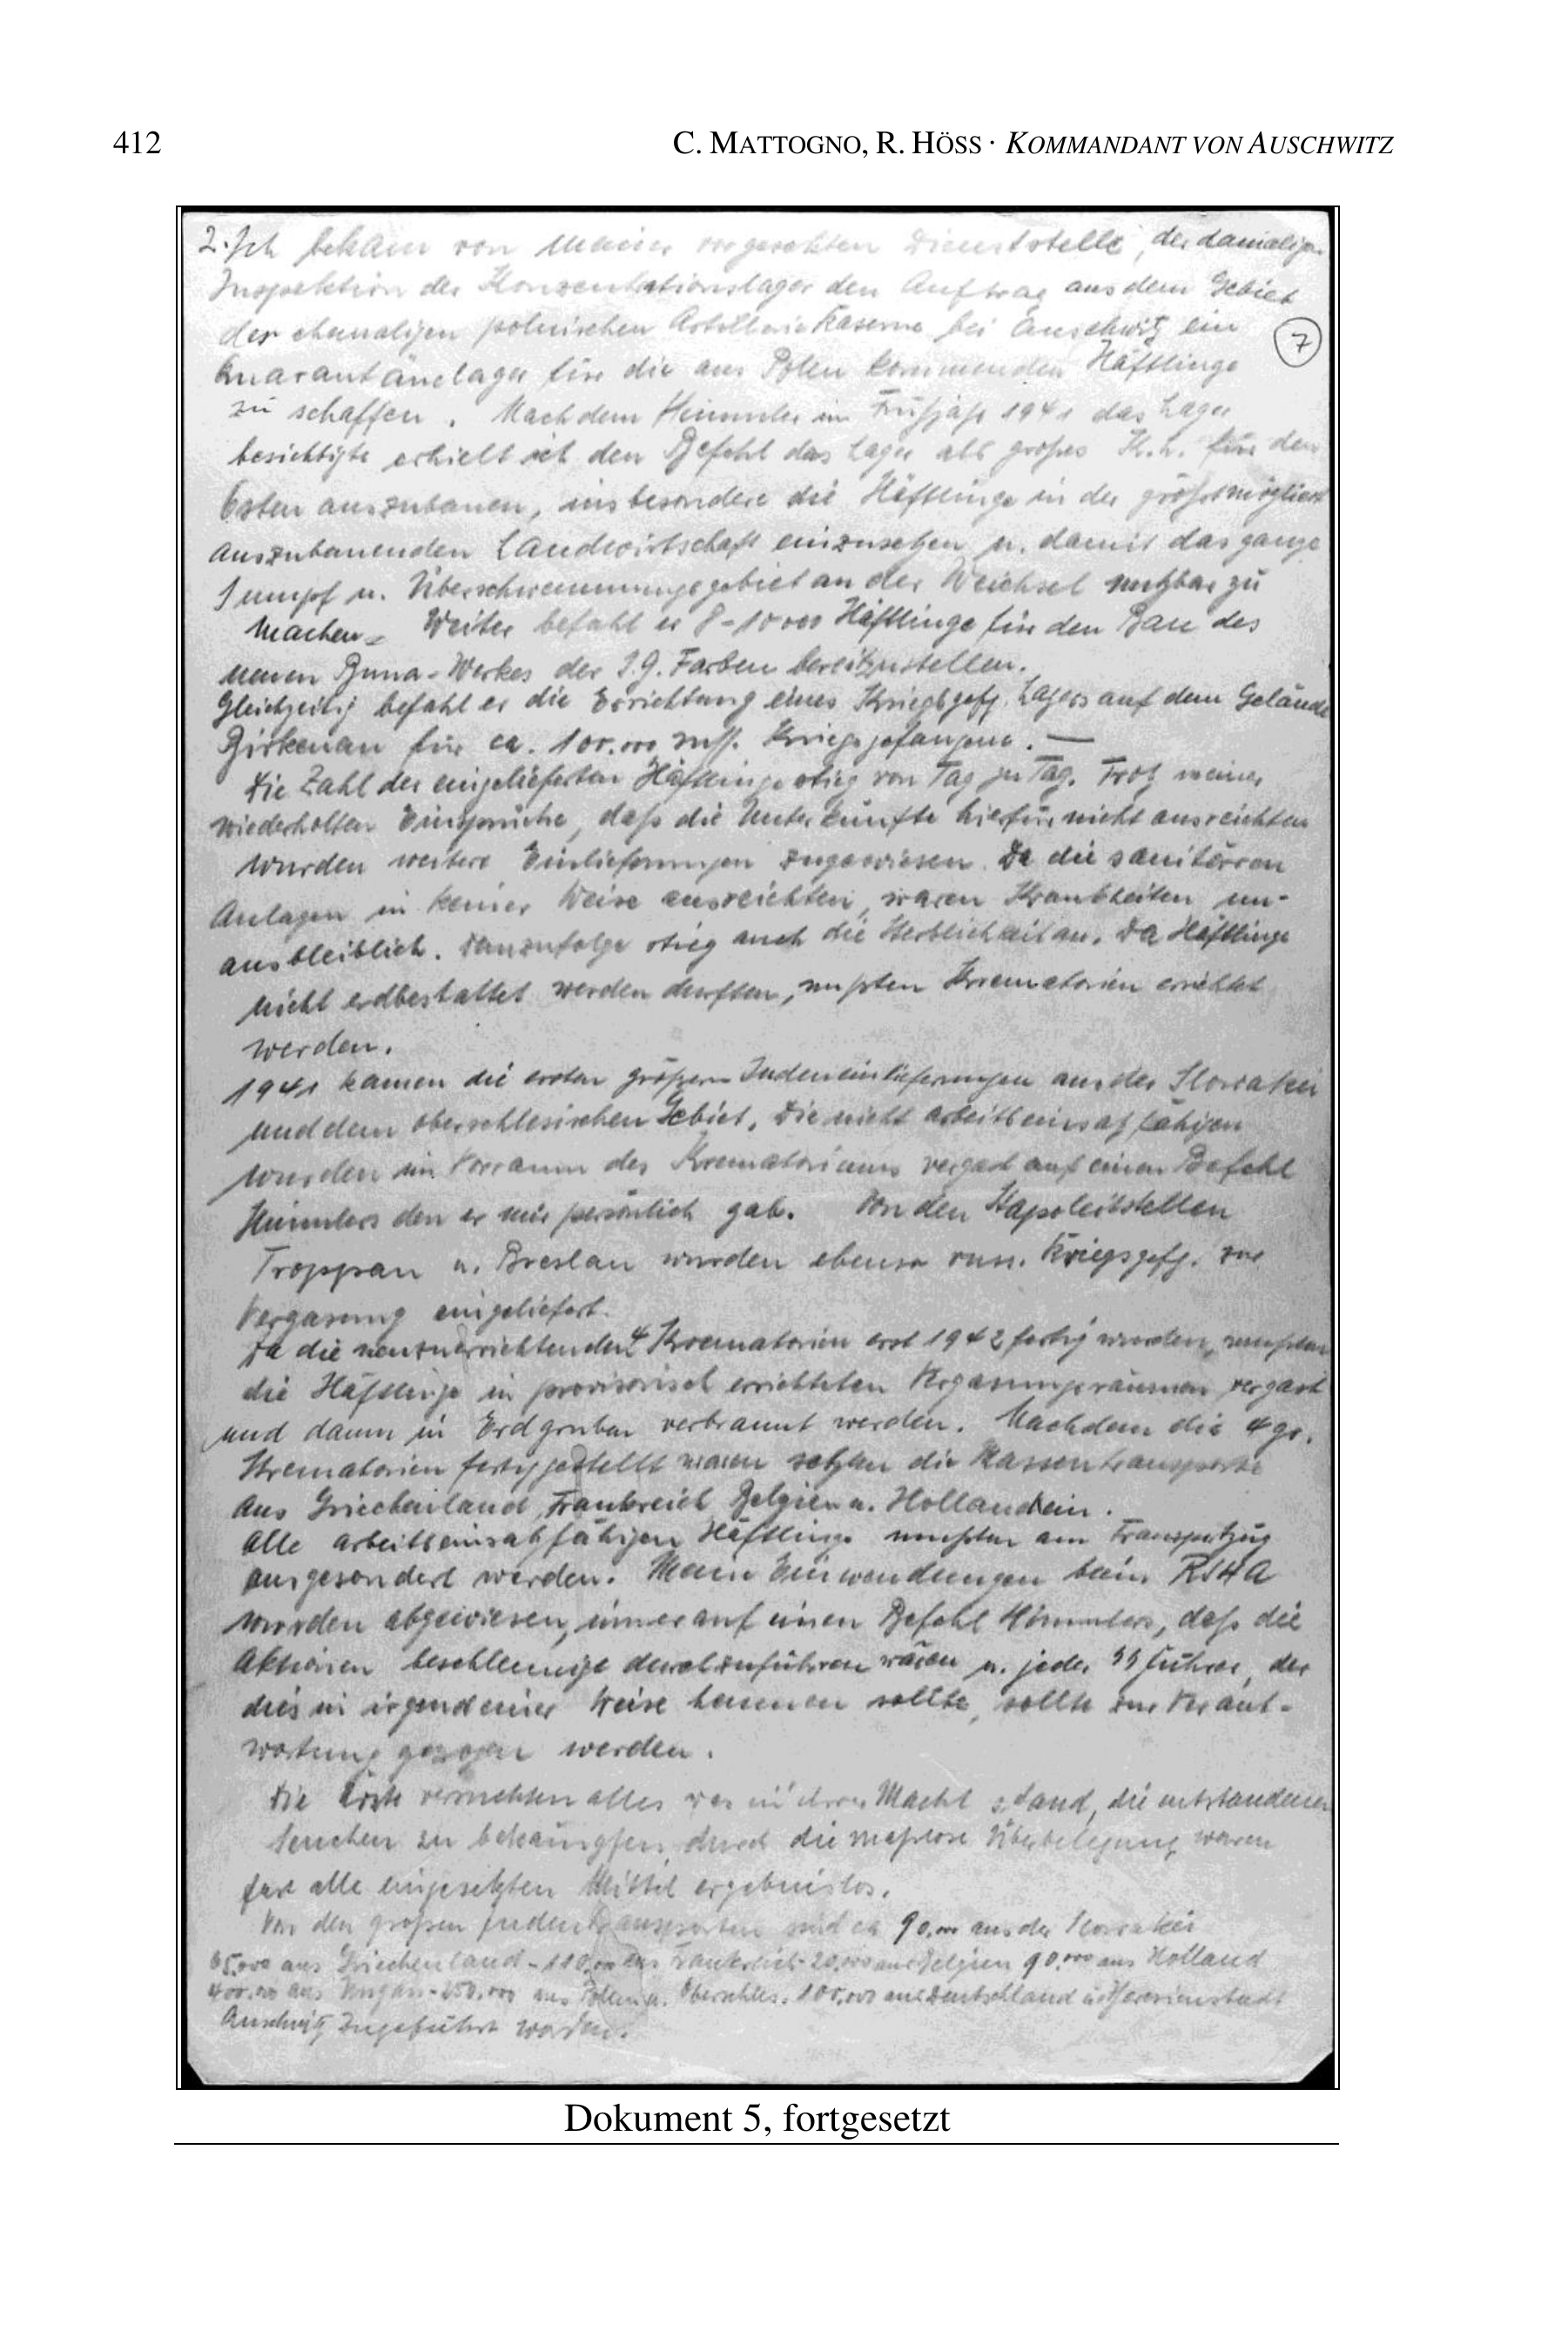 412
C. MATTOGNO, R. HÖSS · KOMMANDANT VON AUSCHWITZ
2. Ich bekam von meiner vorgesetzten Dienststelle, der damaligen
Inspektion der Konzentrationslager den Auftrag aus dem Gebiet
der ehemaligen polnischen Artillerie Kaserne bei Auschwitz ein
7
Quarantänelager für die aus Polen kommenden Häftlinge
zu schaffen. Nachdem Himmler im Frühjahr 1941 das Lager
besichtigte erhielt ich den Befehl das Lager als großes K.L. für den
Osten auszubauen, insbesondere die Häftlinge in der größtmöglichst
auszubauenden Landwirtschaft einzusetzen u. damit das ganze
Sumpf u. Überschwemmungsgebiet an der Weichsel nutzbar zu
machen. Weiter befahl er 8-10000 Häftlinge für den Bau des
neuen Buna-Werkes der I.G. Farben bereitzustellen.
Gleichzeitig befahl er die Errichtung eines Kriegsgefg. Lagers auf dem Gelände
Birkenau für ca. 100.000 russ. Kriegsgefangene. —
Die Zahl der eingelieferten Häftlinge stieg von Tag zu Tag. Trotz meiner
wiederholten Einsprüche, daß die Unterkünfte hierfür nicht ausreichten
wurden weitere Einlieferungen zugewiesen. Da die sanitären
Anlagen in keiner Weise ausreichten, waren Krankheiten un-
ausbleiblich. Demzufolge stieg auch die Sterblichkeit an. Da Häftlinge
nicht erdbestattet werden durften, mußten Krematorien errichtet
werden.
1941 kamen die ersten größeren Judeneinlieferungen aus der Slowakei
und dem oberschlesischen Gebiet. Die nicht arbeitseinsatzfähigen
wurden im Vorraum des Krematoriums vergast auf einen Befehl
Himmlers den er mir persönlich gab. Von den Stapoleitstellen
Troppau u. Breslau wurden ebenso russ. Kriegsgefg. zur
Vergasung eingeliefert.
Da die neuzuerrichtenden 4 Krematorien erst 1942 fertig wurden, mußten
die Häftlinge in provisorisch errichteten Vergasungsräumen vergast
und dann in Erdgruben verbrannt werden. Nachdem die 4 gr.
Krematorien fertiggestellt waren setzten die Massentransporte
aus Griechenland, Frankreich Belgien u. Holland ein.
Alle arbeitseinsatzfähigen Häftlinge mußten am Transportzug
ausgesondert werden. Mein Einwendungen beim RSHA
wurden abgewiesen, immer auf einen Befehl Himmlers, daß die
Aktionen beschleunigt durchzuführen wären u. jeder SS Führer, der
dies in irgendeiner Weise hemmen sollte, sollte zur Verant-
wortung gezogen werden.
Die Ärzte versuchten alles was in ihrer Macht stand, die entstandenen
Seuchen zu bekämpfen, durch die maßlose Überbelegung waren
fast alle eingesetzten Mittel ergebnislos.
Von den großen Judentransporten sind ca 90.000 aus der Slowakei
65.000 aus Griechenland - 110.000 aus Frankreich - 20.000 aus Belgien 90.000 aus Holland
400.000 aus Ungarn - 250.000 aus Polen u. Oberschles. 100.000 aus Deutschland u. Theresienstadt
Auschwitz zugeführt worden.
Dokument 5, fortgesetzt